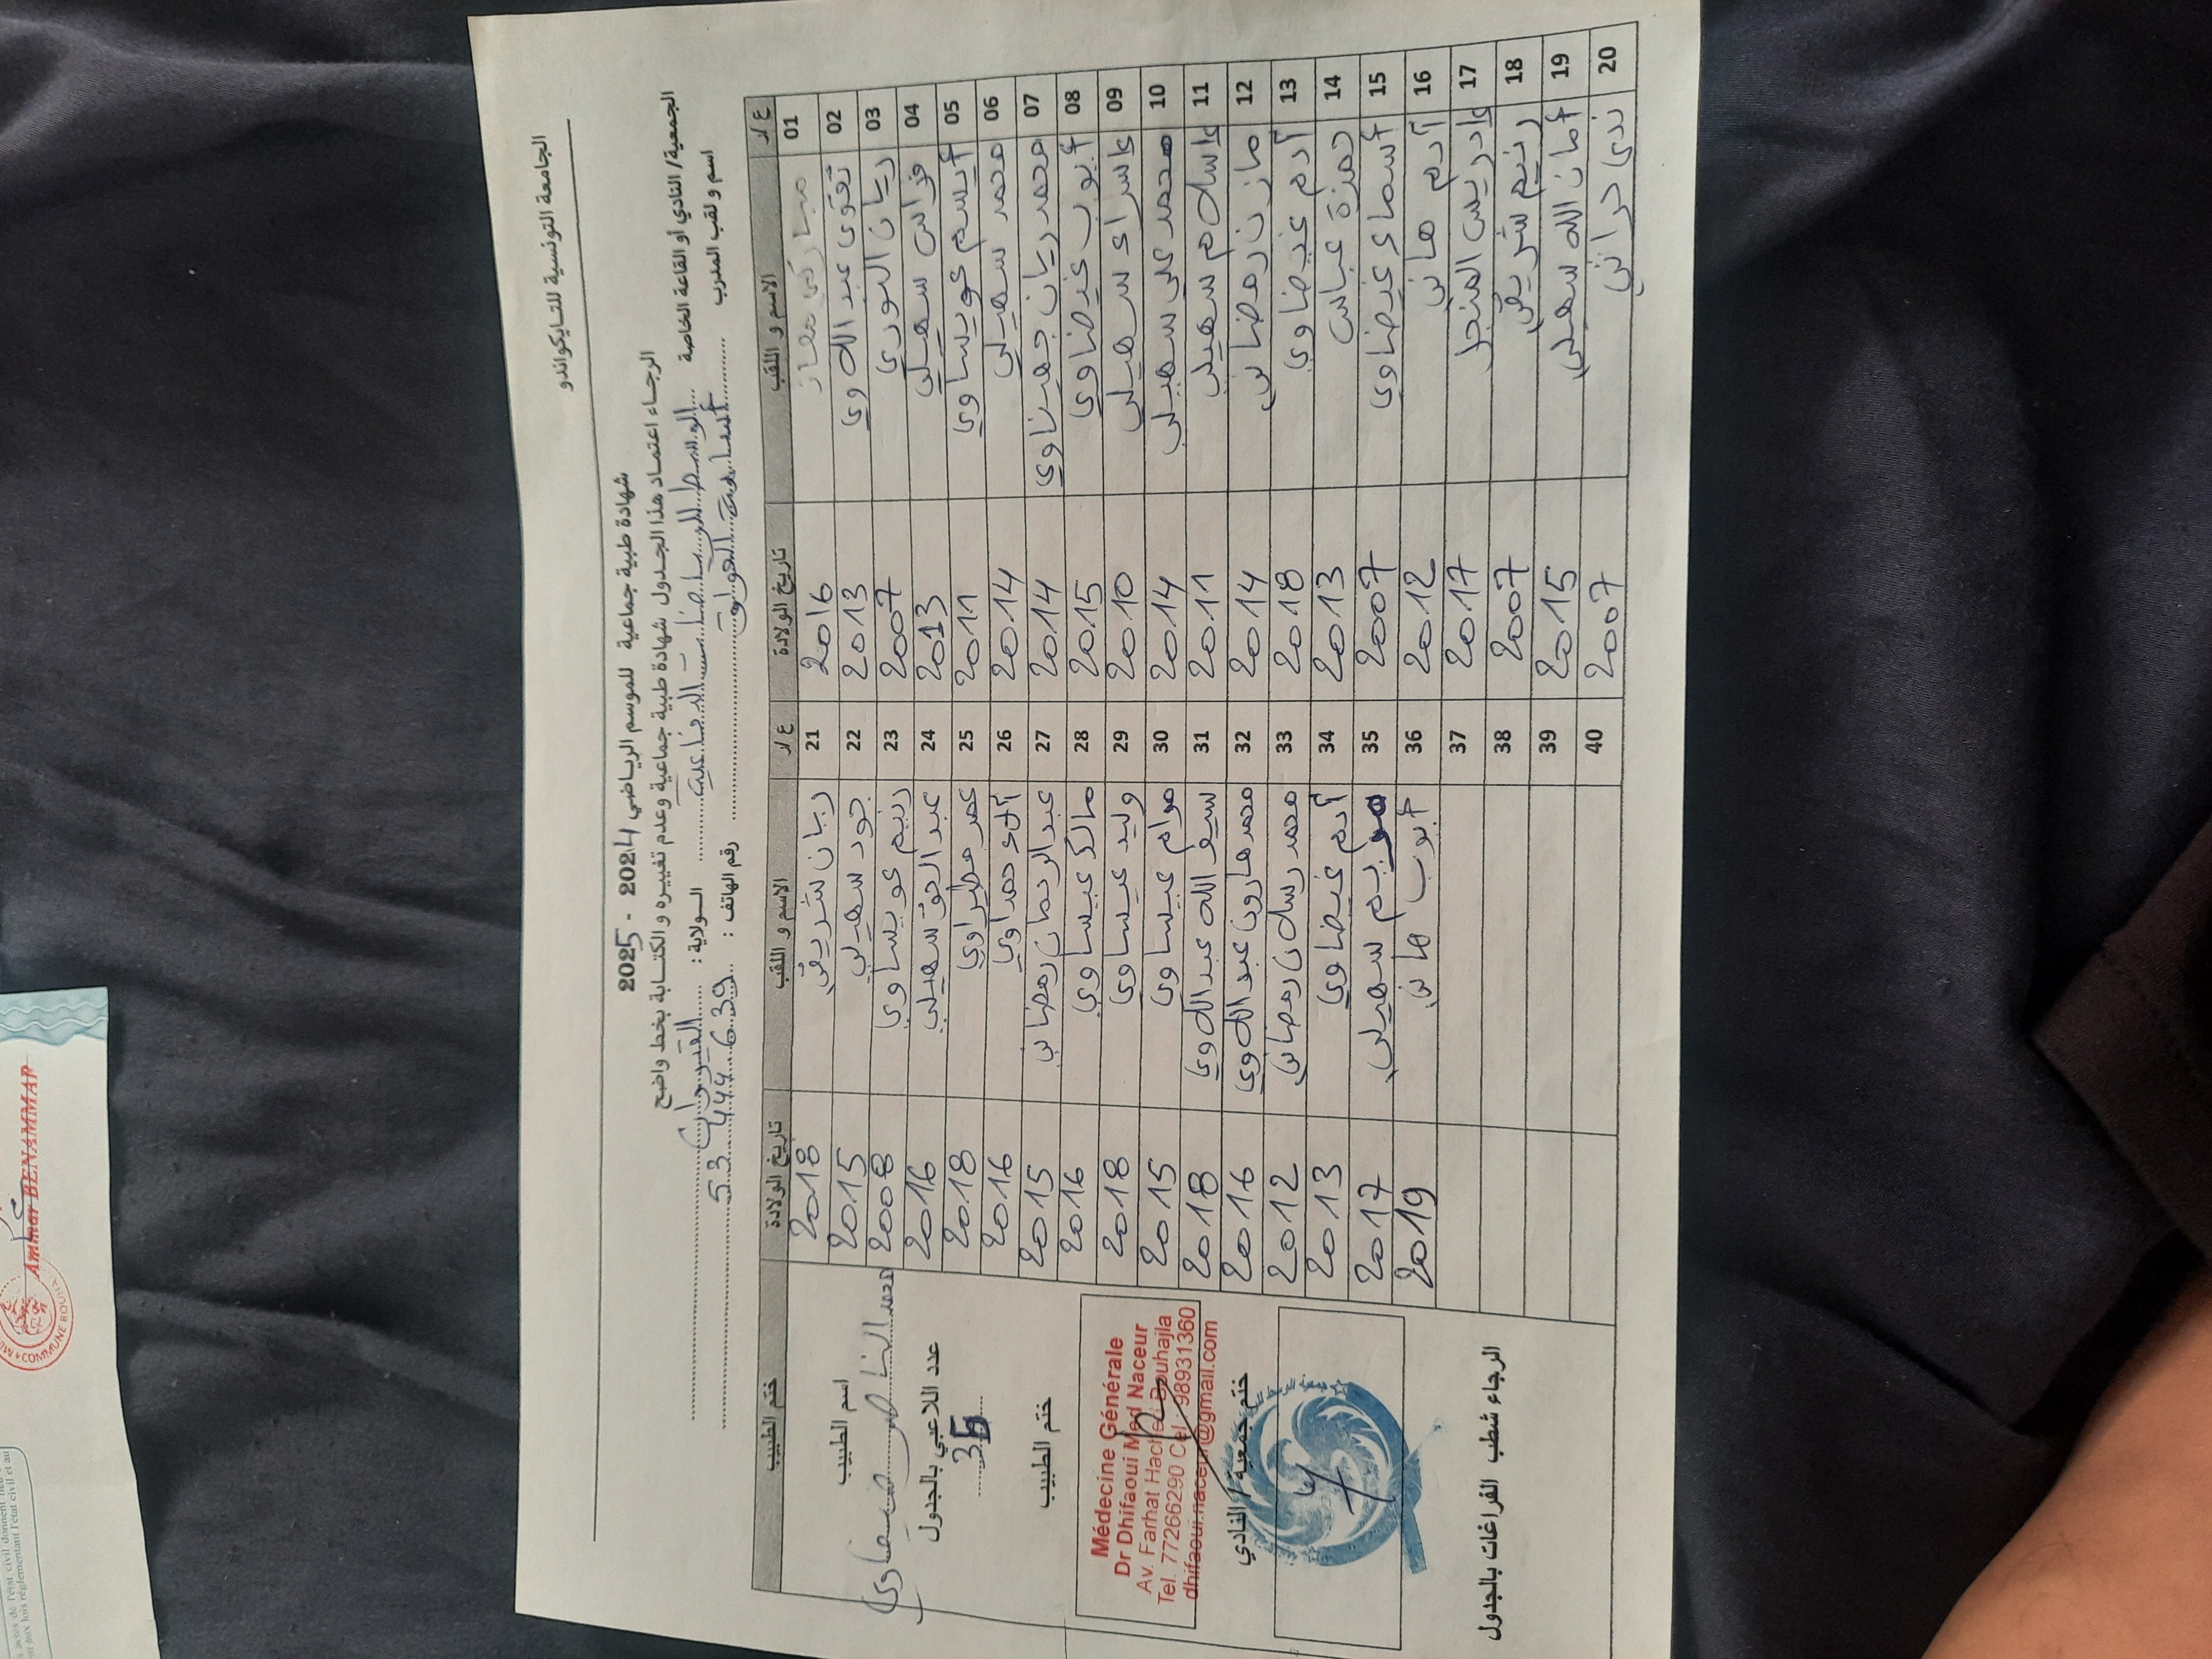 الجامعة التونسية للتايكواندو
شهادة طبية جماعية للموسم الرياضي 2024 - 2025
الرجاء اعتماد هذا الجدول شهادة طبية جماعية وعدم تغييره و الكتابة بخط واضح
الجمعية/ النادي أو القاعة الخاصة الوسط للرياضات الدفاعية الولاية : القيروان
اسم و لقب المدرب أسامة رقم الهاتف : 53 444 639
ع/ر الاسم و اللقب تاريخ الولادة ع/ر الاسم و اللقب تاريخ الولادة ختم الطبيب
01 2016 21 ريان شريف 2018
02 تقوى عبد اللاوي 2013 22 جود سهيلي 2015
03 ريان النوري 2007 23 رنيم عويساوي 2008
04 فراس سهيلي 2013 24 عبد الحق سهيلي 2016
05 أيسم عويساوي 2011 25 عمر مطراوي 2018
06 محمد سهيلي 2014 26 آلاء حمداوي 2016
07 محمد ريان جهيناوي 2014 27 عبد الرحمان رمضاني 2015
08 أيوب غيضاوي 2015 28 مالك عيساوي 2016
09 إسراء سهيلي 2010 29 وليد عيساوي 2018
10 محمد علي سهيلي 2014 30 مرام عيساوي 2015
11 إسلام سهيلي 2011 31 سيف الله عبد اللاوي 2018
12 مازن رمضاني 2014 32 محمد هارون عبد اللاوي 2016
13 آدم غيضاوي 2018 33 محمد رسلان رمضاني 2012
14 حمزة عباس 2013 34 آدم غيضاوي 2013
15 أسماء غيضاوي 2007 35 مريم سهيلي 2017
16 آدم هاني 2012 36 أيوب هاني 2019
17 إدريس المنجل 2017 37
18 رنيم شريف 2007 38
19 أمان الله سهيلي 2015 39
20 ندى حراثي 2007 40
اسم الطبيب
محمد الناصر ضيفاوي
عدد اللاعبي بالجدول
35
ختم الطبيب
Médecine Générale
Dr Dhifaoui Med Naceur
Av. Farhat Hached Bouhajla
Tel. 77266290 Cel : 98931360
dhifaoui.naceur@gmail.com
ختم جمعية / النادي
الرجاء شطب الفراغات بالجدول
Ammar BENAMMAR
COMMUNE BOUHA